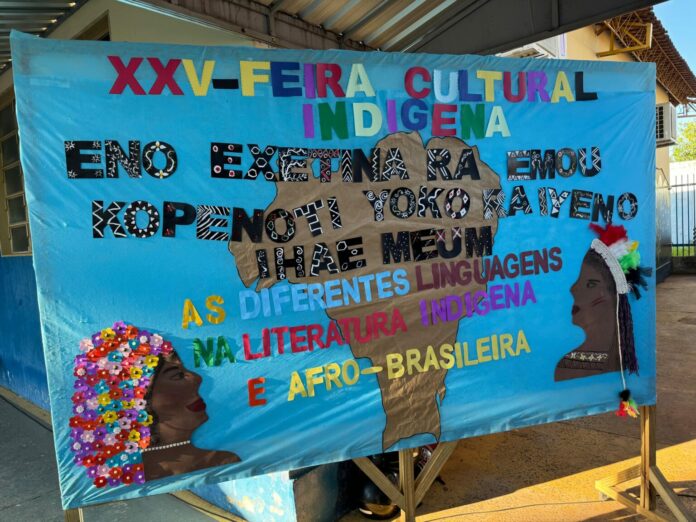 XXV-FEIRA CULTURAL
INDIGENA
ENO EXETINA RA EMOU
KOPENOTI YOKO RAIYENO
IHAE MEUM
AS DIFERENTES LINGUAGENS
NA LITERATURA INDIGENA
E AFRO-BRASILEIRA